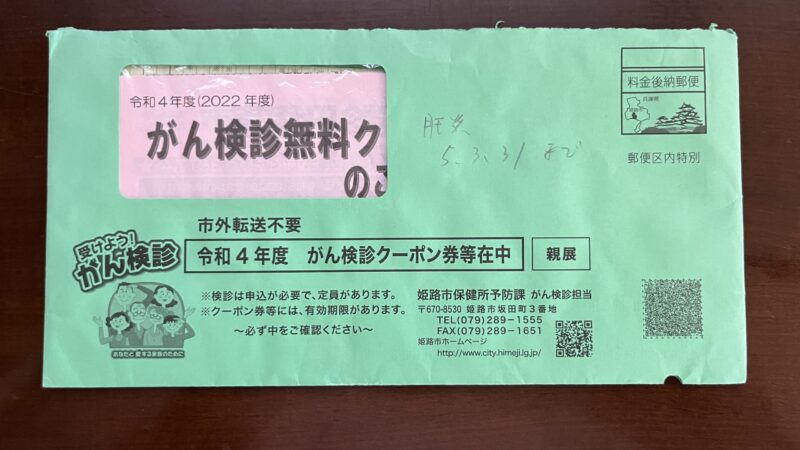 令和4年度(2022年度)
がん検診無料ク
のご
肝炎
5.3.31まで
料金後納郵便
兵庫県
姫路市
郵便区内特別
市外転送不要
受けよう!
がん検診
令和4年度 がん検診クーポン券等在中
親展
※検診は申込が必要で、定員があります。
※クーポン券等には、有効期限があります。
～必ず中をご確認ください～
あなたと愛する家族のために
姫路市保健所予防課 がん検診担当
〒670-8530 姫路市坂田町3番地
TEL(079)289-1555
FAX(079)289-1651
姫路市ホームページ
http://www.city.himeji.lg.jp/